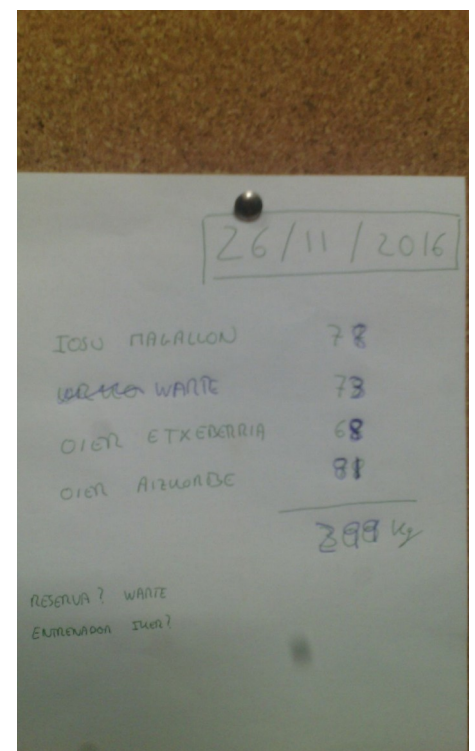 26/11/2016
IOSU MAGALLON 78
WARTE 73
OIER ETXEBERRIA 68
OIER AIZKORBE
Kg
RESERVA? WARTE
ENTRENADOR IKER?